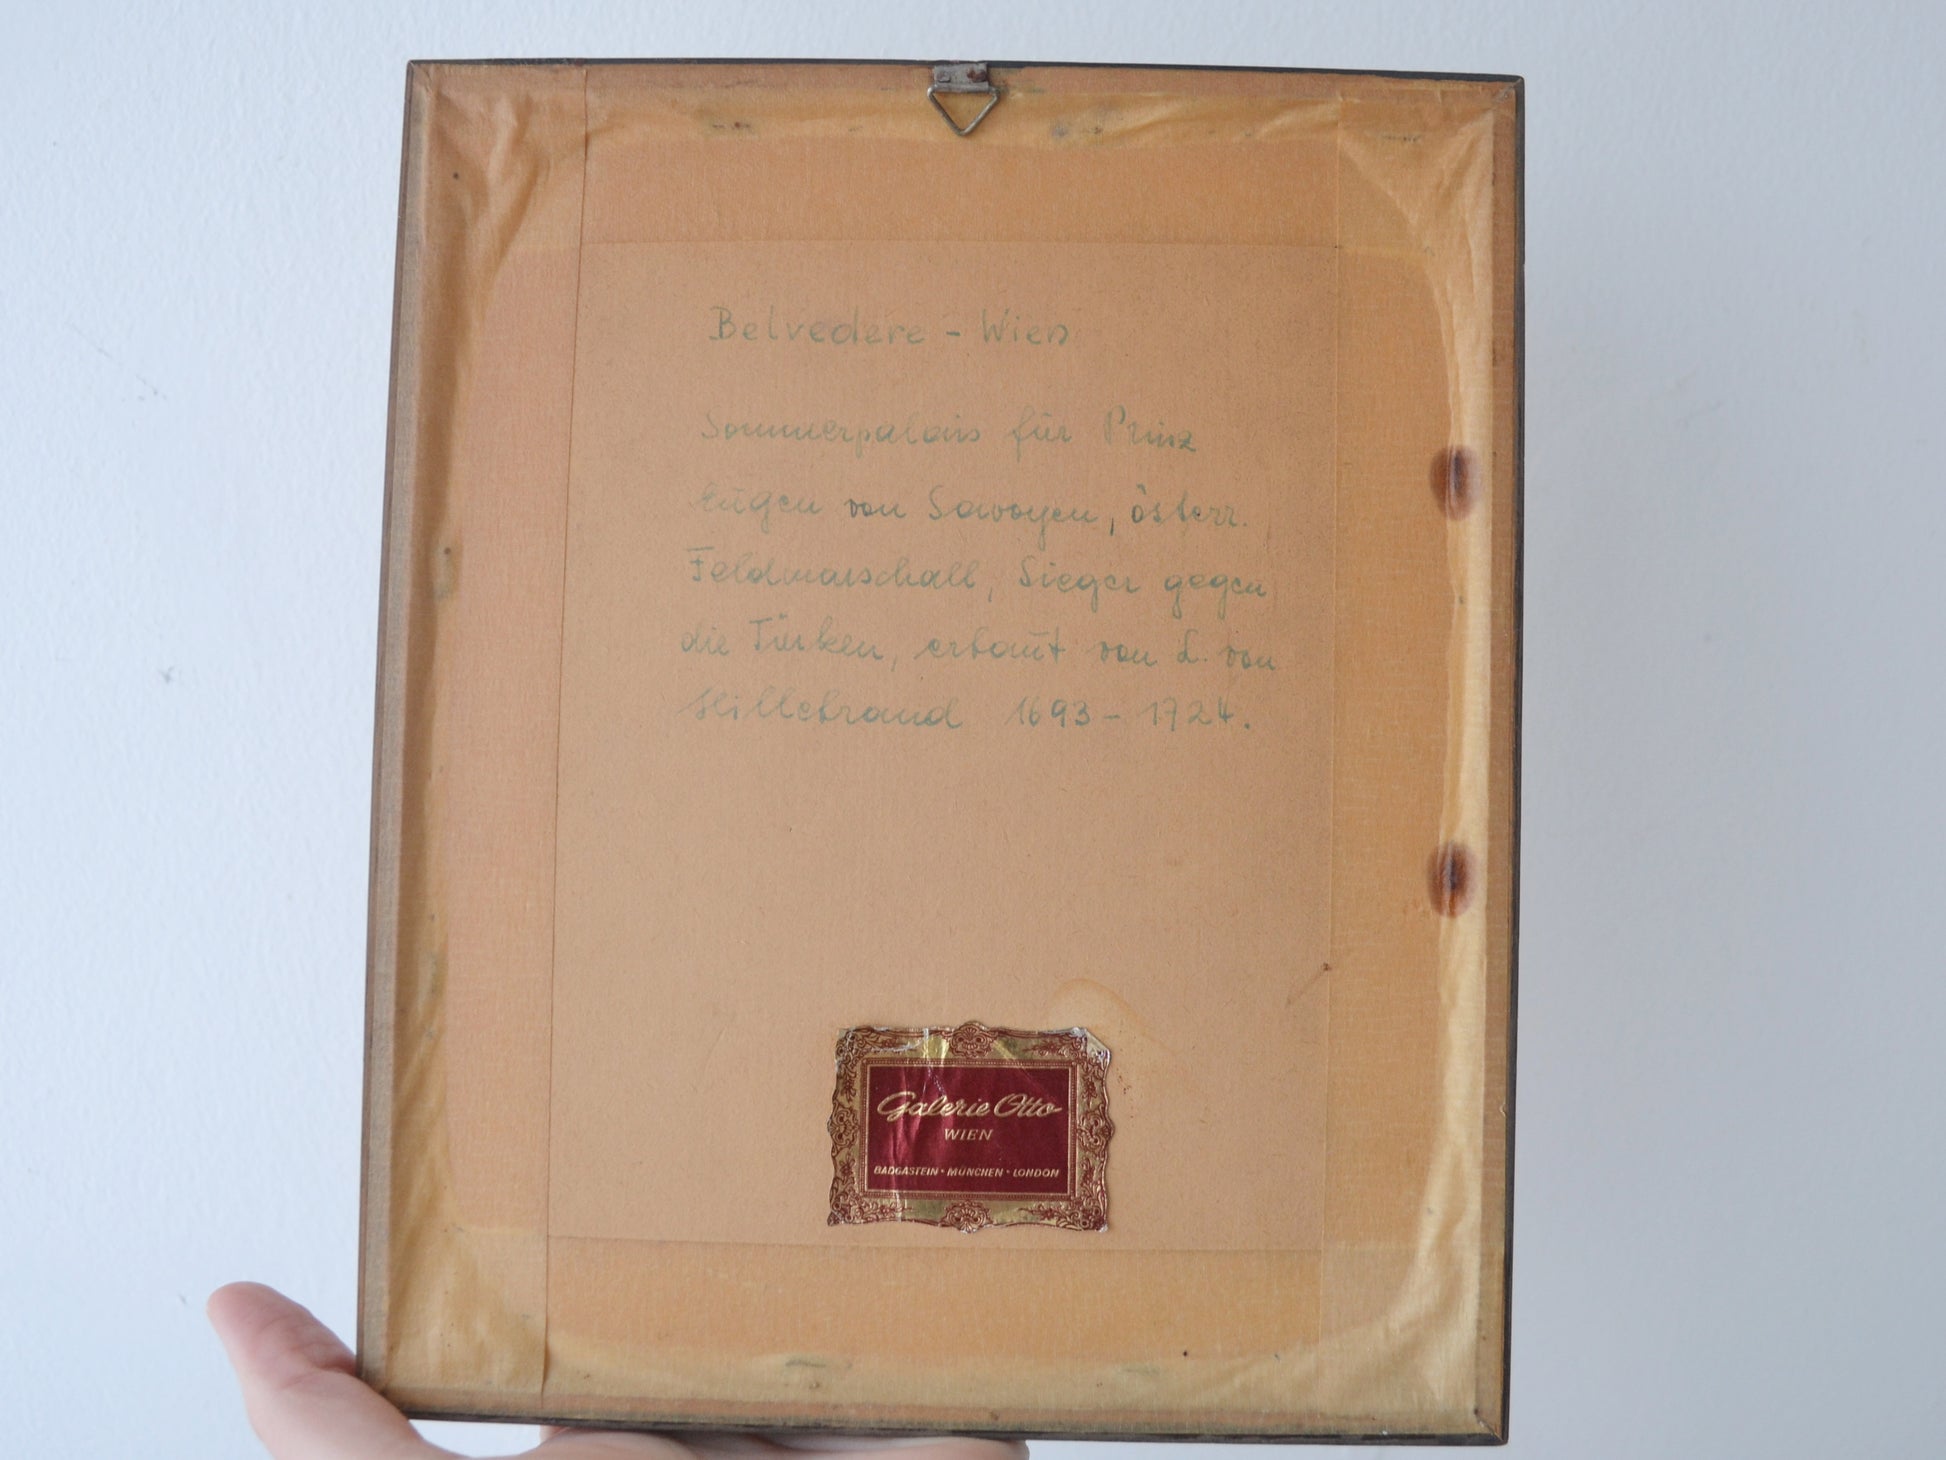 Belvedere - Wien
Sommerpalais für Prinz
Eugen von Savoyen, österr.
Feldmarschall, Sieger gegen
die Türken, erbaut von L. von
Hillebrand 1693 - 1724.
Galerie Otto
WIEN
BADGASTEIN • MÜNCHEN • LONDON